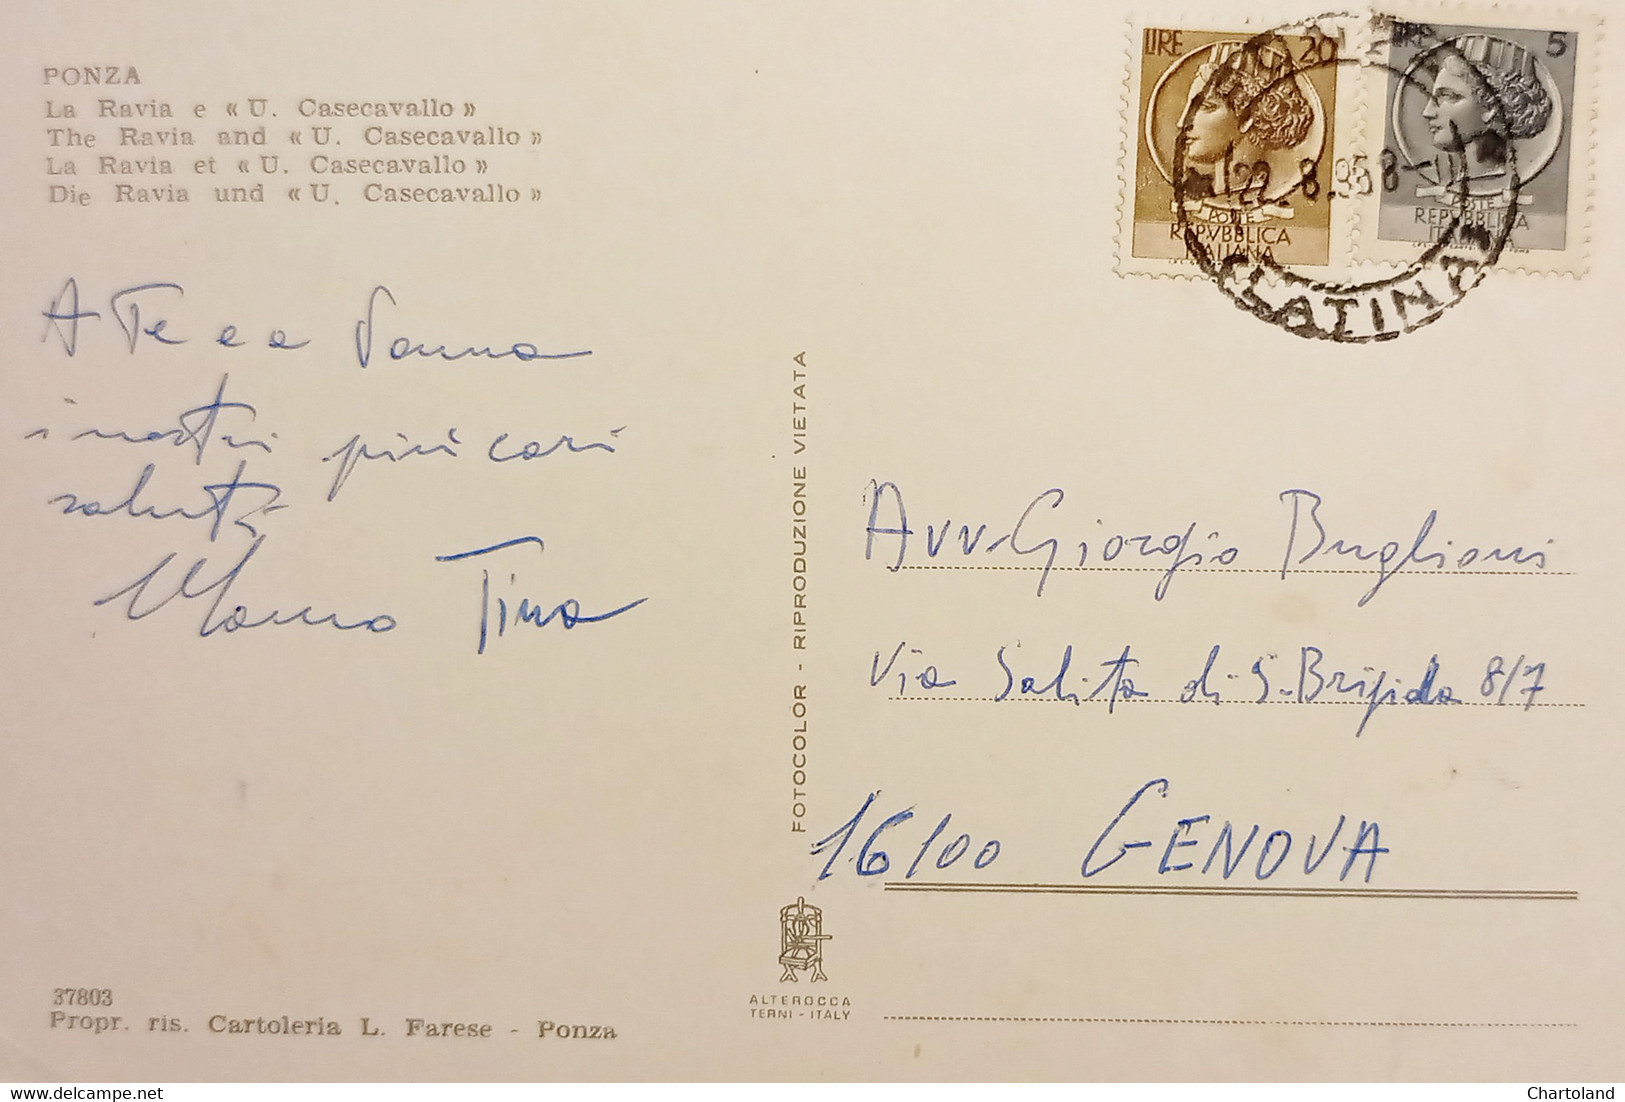 PONZA
La Ravia e « U. Casecavallo »
The Ravia and « U. Casecavallo »
La Ravia et « U. Casecavallo »
Die Ravia und « U. Casecavallo »
LIRE 20
POSTE
REPVBBLICA
ITALIANA
LIRE 5
POSTE
REPVBBLICA
ITALIANA
22.8.
LATINA
A Te e a
i nostri più cari
saluti
Tina
FOTOCOLOR - RIPRODUZIONE VIETATA
Avv. Giorgio Buglioni
Via Salita di S. Brigida 8/7
16100 GENOVA
ALTEROCCA
TERNI - ITALY
37803
Propr. ris. Cartoleria L. Farese - Ponza
delcampe.net
Chartoland